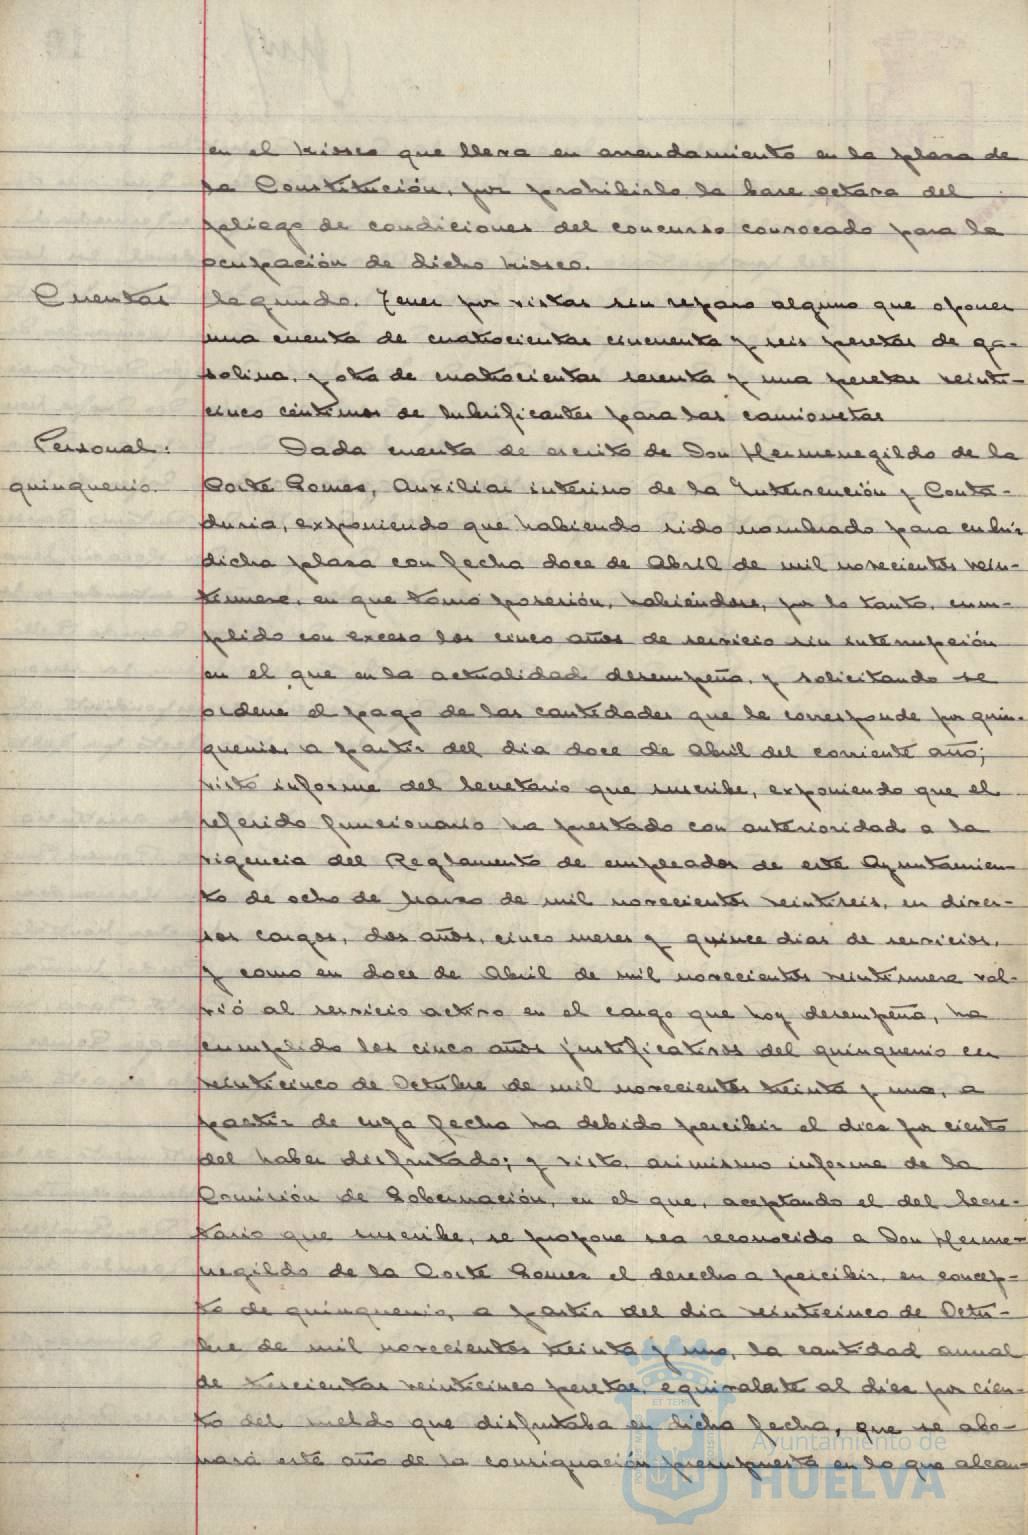 en el kiosco que lleva en arrendamiento en la plaza de
la Constitución, por prohibirlo la base octava del
pliego de condiciones del concurso convocado para la
ocupación de dicho kiosco.
Cuentas Segundo. Tener por vistas sin reparo alguno que oponer
una cuenta de cuatrocientas cincuenta y seis pesetas de ga-
solina, y otra de cuatrocientas sesenta y una pesetas veinti-
cinco céntimos de lubrificantes para las camionetas
Personal: Dada cuenta de escrito de Don Hermenegildo de la
quinquenio. Corte Gomez, Auxiliar interino de la Intervención y Conta-
duria, exponiendo que habiendo sido nombrado para cubrir
dicha plaza con fecha doce de Abril de mil novecientos vein-
tinueve, en que tomó posesión, habiéndose, por lo tanto, cum-
plido con exceso los cinco años de servicio sin interrupción
en el que en la actualidad desempeña, y solicitando se
ordene el pago de las cantidades que le corresponde por quin-
quenios a partir del dia doce de Abril del corriente año;
visto informe del Secretario que suscribe, exponiendo que el
referido funcionario ha prestado con anterioridad a la
vigencia del Reglamento de empleados de este Ayuntamien-
to de ocho de Marzo de mil novecientos veintiseis, en diver-
sos cargos, dos años, cinco meses y quince dias de servicios,
y como en doce de Abril de mil novecientos veintinueve vol-
vió al servicio activo en el cargo que hoy desempeña, ha
cumplido los cinco años justificativos del quinquenio en
veinticinco de Octubre de mil novecientos treinta y uno, a
partir de cuya fecha ha debido percibir el diez por ciento
del haber disfrutado; y visto, asimismo informe de la
Comisión de Gobernación, en el que, aceptando el del Secre-
tario que suscribe, se propone sea reconocido a Don Herme-
negildo de la Corte Gomez el derecho a percibir, en concep-
to de quinquenio, a partir del dia veinticinco de Octu-
bre de mil novecientos treinta y uno, la cantidad anual
de trescientas veinticinco pesetas, equivalate al diez por cien-
to del sueldo que disfrutaba en dicha fecha, que se abo-
nará este año de la consignación presupuesta en lo que alcan-
Ayuntamiento de
HUELVA